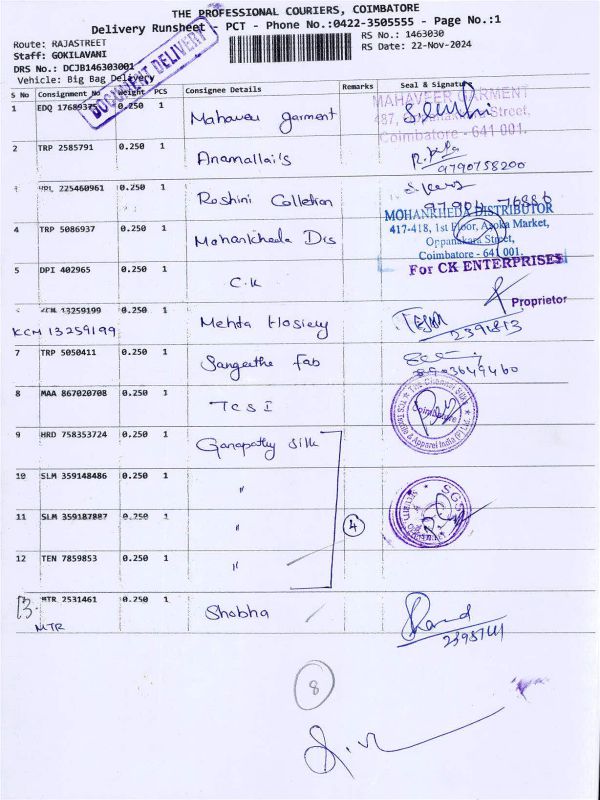 THE PROFESSIONAL COURIERS, COIMBATORE
Delivery Runsheet - PCT - Phone No.:0422-3505555 - Page No.:1
Route: RAJASTREET
Staff: GOKILAVANI
DRS No.: DCJB146303001
Vehicle: Big Bag Delivery
RS No.: 1463030
RS Date: 22-Nov-2024
DOCUMENT DELIVERY
S No Consignment No Weight PCS Consignee Details Remarks Seal & Signature
1 EDQ 0.250 1 Mahaveer garment
MAHAVEER GARMENT
Street,
Coimbatore - 641 001.
2 TRP 2585791 0.250 1 Anamallai's
9790758200
225460961 0.250 1 Roshini Colletion
4 TRP 5086937 0.250 1 Mohankheda Dis
MOHANKHEDA DISTRIBUTOR
417-418, 1st Floor, Asoka Market,
Oppanakara Street,
Coimbatore - 641 001.
5 DPI 402965 0.250 1 C.K
For CK ENTERPRISES
Proprietor
KCM 13259199 0.250 1 Mehta Hosiery
KCM 13259199
7 TRP 5050411 0.250 1 Sangeethe Fab
8 MAA 867020708 0.250 1 TCS I
The Chennai Silks
TCS Textile & Apparel India (P) Ltd.
Coimbatore
9 HRD 758353724 0.250 1 Ganapathy Silk
10 SLM 359148486 0.250 1 "
11 SLM 359187887 0.250 1 "
4
SGS
12 TEN 7859853 0.250 1 "
13. MTR 2531461 0.250 1 Shobha
MTR
8